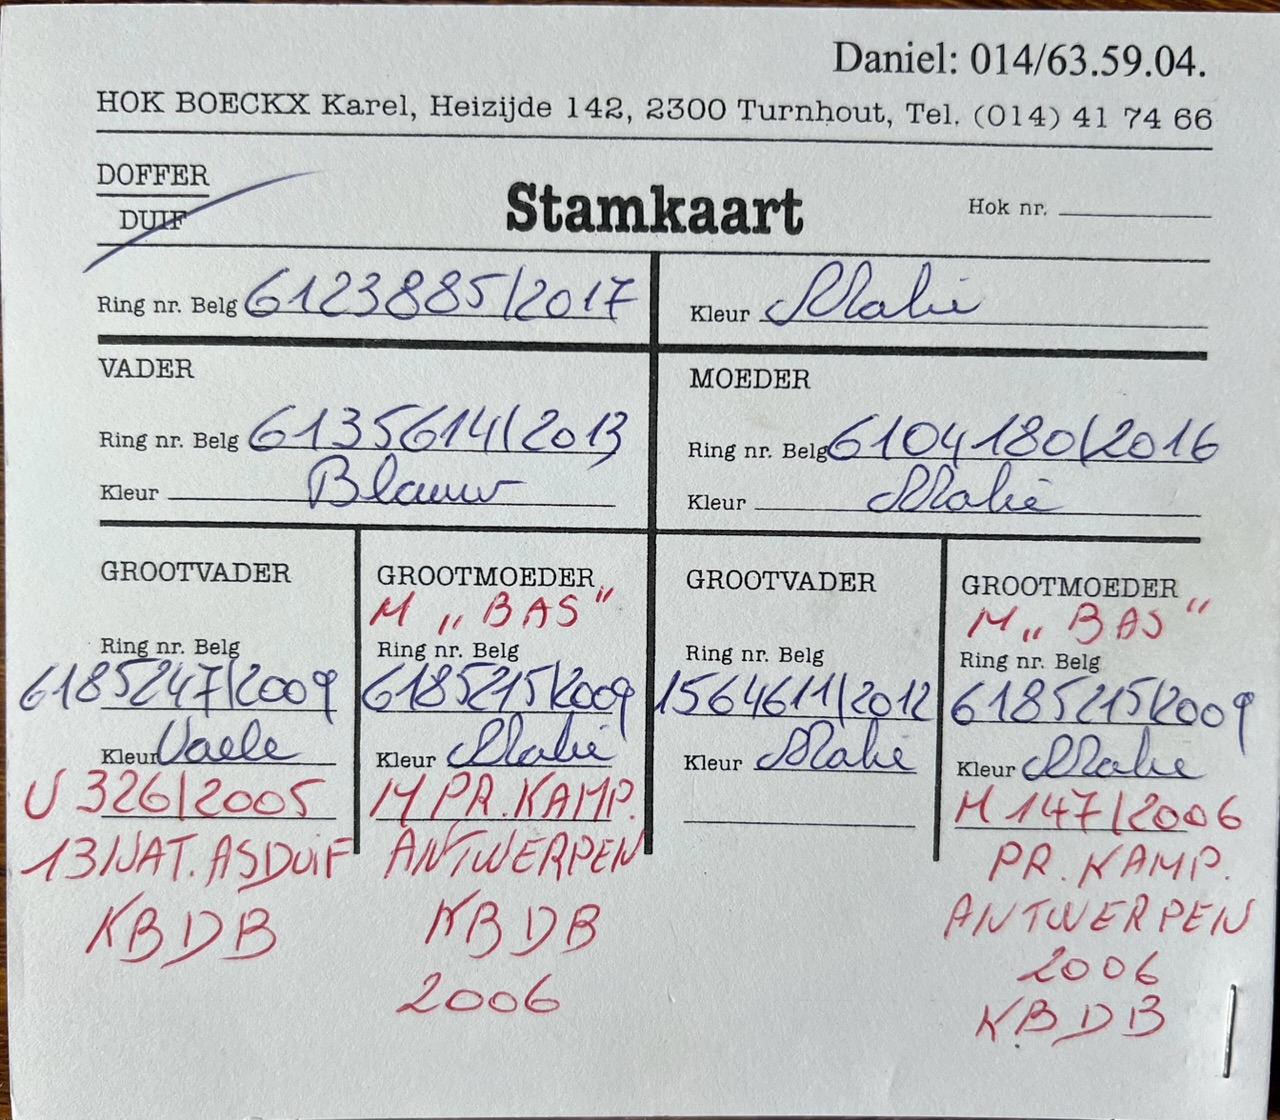 Daniel: 014/63.59.04.
HOK BOECKX Karel, Heizijde 142, 2300 Turnhout, Tel. (014) 41 74 66
DOFFER
DUIF
Stamkaart
Hok nr.
Ring nr. Belg 6123885/2017
Kleur Malie
VADER
Ring nr. Belg 6135614/2013
Kleur Blauw
MOEDER
Ring nr. Belg 6104180/2016
Kleur Malie
GROOTVADER
Ring nr. Belg
6185247/2009
Kleur Vaele
U 326/2005
13/NAT. ASDUIF
KBDB
GROOTMOEDER
M „BAS"
Ring nr. Belg
6185215/2009
Kleur Malie
M PR. KAMP.
ANTWERPEN
KBDB
2006
GROOTVADER
Ring nr. Belg
1564611/2012
Kleur Malie
GROOTMOEDER
M „BAS"
Ring nr. Belg
6185215/2009
Kleur Malie
M 147/2006
PR. KAMP.
ANTWERPEN
2006
KBDB